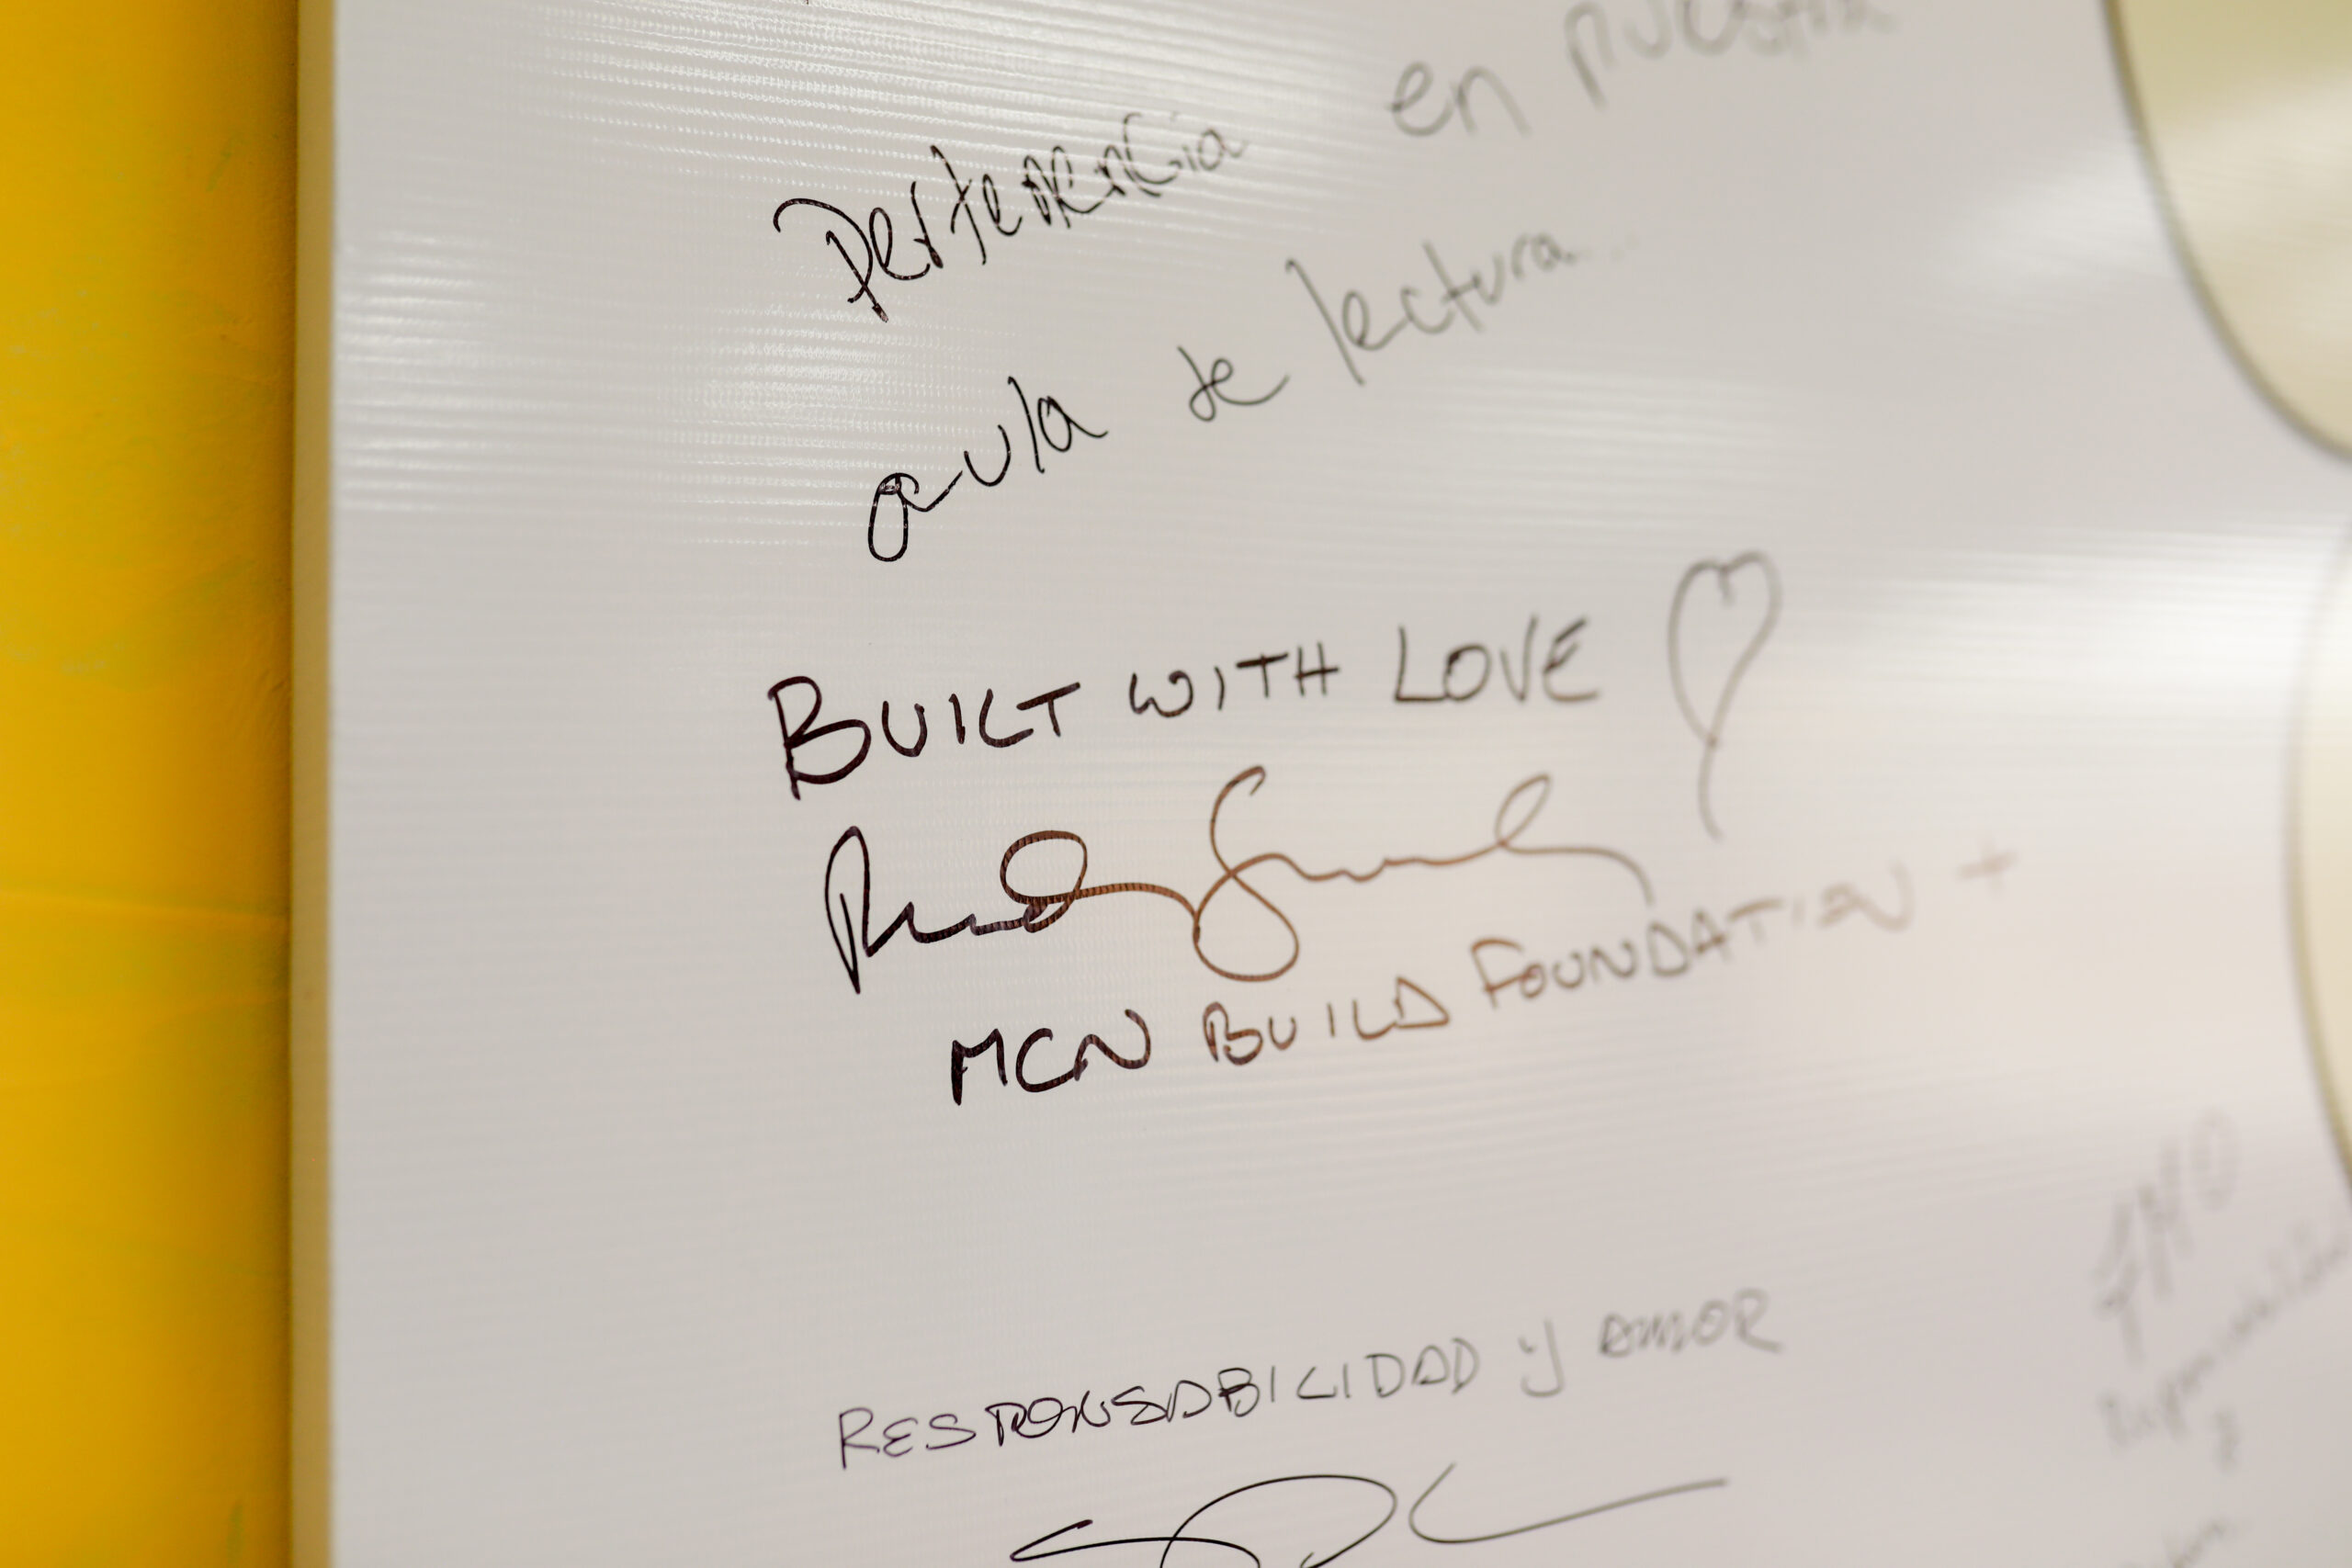 Pertenencia en nuestra
aula de lectura.
BUILT WITH LOVE
MCN BUILD FOUNDATION +
RESPONSABILIDAD Y AMOR